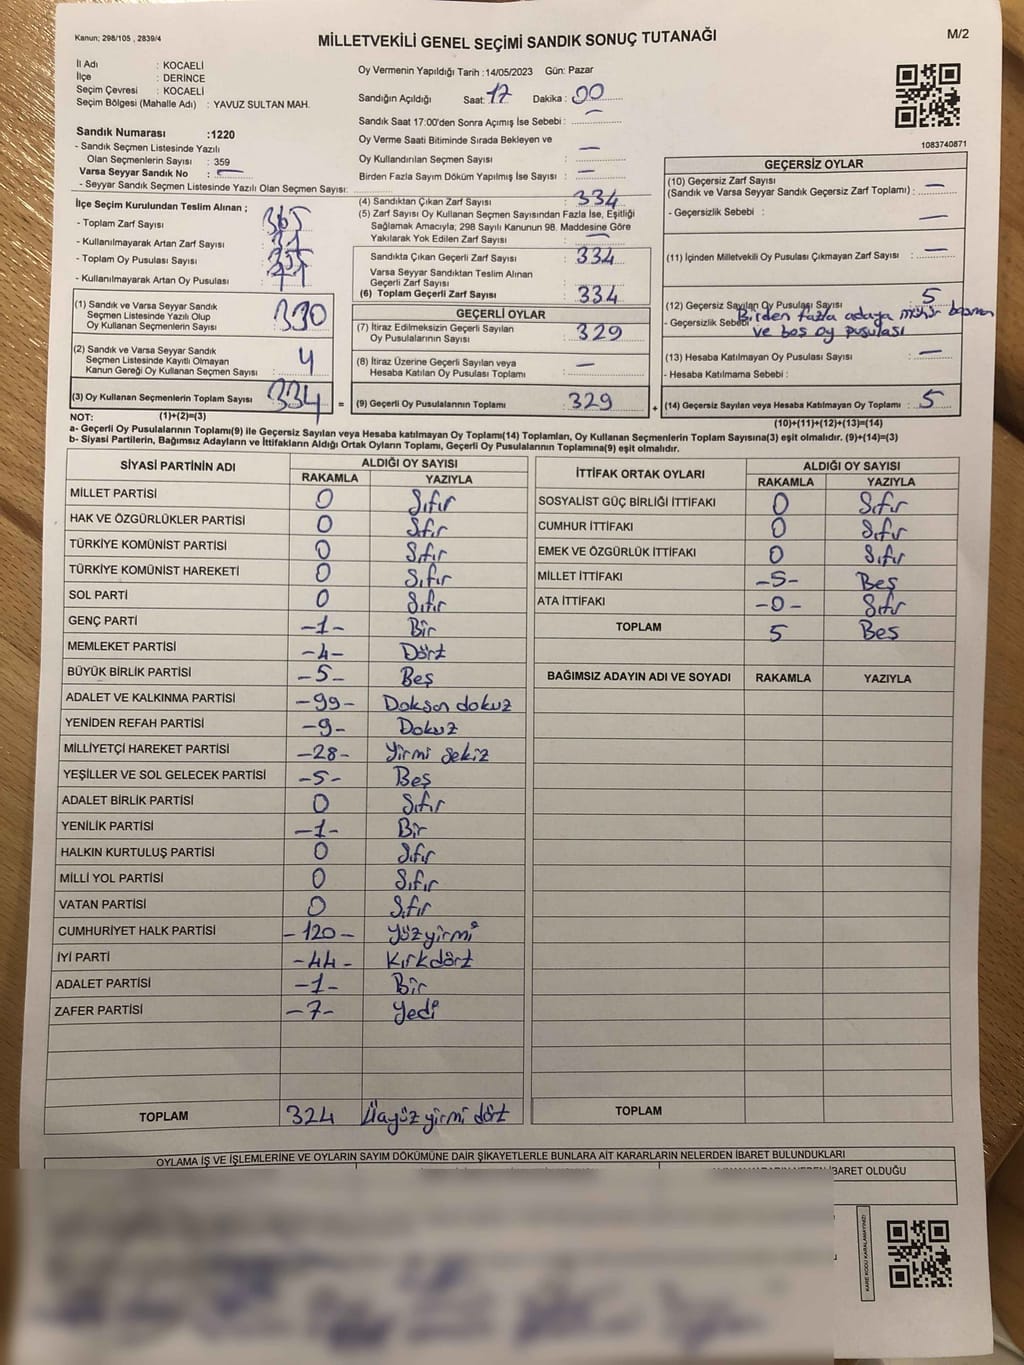 Kanun; 298/105 , 2839/4
MİLLETVEKİLİ GENEL SEÇİMİ SANDIK SONUÇ TUTANAĞI
M/2
İl Adı : KOCAELİ
İlçe : DERİNCE
Seçim Çevresi : KOCAELİ
Seçim Bölgesi (Mahalle Adı) : YAVUZ SULTAN MAH.
Sandık Numarası :1220
- Sandık Seçmen Listesinde Yazılı
Olan Seçmenlerin Sayısı : 359
Varsa Seyyar Sandık No : —
- Seyyar Sandık Seçmen Listesinde Yazılı Olan Seçmen Sayısı:
Oy Vermenin Yapıldığı Tarih :14/05/2023 Gün: Pazar
Sandığın Açıldığı Saat: 17 Dakika : 00
Sandık Saat 17:00'den Sonra Açımış İse Sebebi : —
Oy Verme Saati Bitiminde Sırada Bekleyen ve
Oy Kullandırılan Seçmen Sayısı : —
Birden Fazla Sayım Döküm Yapılmış İse Sayısı : —
1083740871
İlçe Seçim Kurulundan Teslim Alınan ;
- Toplam Zarf Sayısı : 365
- Kullanılmayarak Artan Zarf Sayısı : 31
- Toplam Oy Pusulası Sayısı :
- Kullanılmayarak Artan Oy Pusulası :
(1) Sandık ve Varsa Seyyar Sandık
Seçmen Listesinde Yazılı Olup
Oy Kullanan Seçmenlerin Sayısı : 330
(2) Sandık ve Varsa Seyyar Sandık
Seçmen Listesinde Kayıtlı Olmayan
Kanun Gereği Oy Kullanan Seçmen Sayısı : 4
(3) Oy Kullanan Seçmenlerin Toplam Sayısı : 334
(4) Sandıktan Çıkan Zarf Sayısı : 334
(5) Zarf Sayısı Oy Kullanan Seçmen Sayısından Fazla İse, Eşitliği
Sağlamak Amacıyla; 298 Sayılı Kanunun 98. Maddesine Göre
Yakılarak Yok Edilen Zarf Sayısı : —
Sandıkta Çıkan Geçerli Zarf Sayısı : 334
Varsa Seyyar Sandıktan Teslim Alınan
Geçerli Zarf Sayısı :
(6) Toplam Geçerli Zarf Sayısı : 334
GEÇERLİ OYLAR
(7) İtiraz Edilmeksizin Geçerli Sayılan
Oy Pusulalarının Sayısı : 329
(8) İtiraz Üzerine Geçerli Sayılan veya
Hesaba Katılan Oy Pusulası Toplamı : —
= (9) Geçerli Oy Pusulalarının Toplamı : 329
GEÇERSİZ OYLAR
(10) Geçersiz Zarf Sayısı
(Sandık ve Varsa Seyyar Sandık Geçersiz Zarf Toplamı) : —
- Geçersizlik Sebebi : —
(11) İçinden Milletvekili Oy Pusulası Çıkmayan Zarf Sayısı : —
(12) Geçersiz Sayılan Oy Pusulası Sayısı : 5
- Geçersizlik Sebebi Birden fazla adaya mühür basması
ve boş oy pusulası
(13) Hesaba Katılmayan Oy Pusulası Sayısı : —
- Hesaba Katılmama Sebebi :
+ (14) Geçersiz Sayılan veya Hesaba Katılmayan Oy Toplamı : 5
NOT: (1)+(2)=(3)
(10)+(11)+(12)+(13)=(14)
a- Geçerli Oy Pusulalarının Toplamı(9) ile Geçersiz Sayılan veya Hesaba katılmayan Oy Toplamı(14) Toplamları, Oy Kullanan Seçmenlerin Toplam Sayısına(3) eşit olmalıdır. (9)+(14)=(3)
b- Siyasi Partilerin, Bağımsız Adayların ve İttifakların Aldığı Ortak Oyların Toplamı, Geçerli Oy Pusulalarının Toplamına(9) eşit olmalıdır.
SİYASİ PARTİNİN ADI ALDIĞI OY SAYISI
RAKAMLA YAZIYLA
MİLLET PARTİSİ 0 Sıfır
HAK VE ÖZGÜRLÜKLER PARTİSİ 0 Sıfır
TÜRKİYE KOMÜNİST PARTİSİ 0 Sıfır
TÜRKİYE KOMÜNİST HAREKETİ 0 Sıfır
SOL PARTİ 0 Sıfır
GENÇ PARTİ -1- Bir
MEMLEKET PARTİSİ -4- Dört
BÜYÜK BİRLİK PARTİSİ -5- Beş
ADALET VE KALKINMA PARTİSİ -99- Doksan dokuz
YENİDEN REFAH PARTİSİ -9- Dokuz
MİLLİYETÇİ HAREKET PARTİSİ -28- Yirmi sekiz
YEŞİLLER VE SOL GELECEK PARTİSİ -5- Beş
ADALET BİRLİK PARTİSİ 0 Sıfır
YENİLİK PARTİSİ -1- Bir
HALKIN KURTULUŞ PARTİSİ 0 Sıfır
MİLLİ YOL PARTİSİ 0 Sıfır
VATAN PARTİSİ 0 Sıfır
CUMHURİYET HALK PARTİSİ -120- Yüzyirmi
İYİ PARTİ -44- Kırkdört
ADALET PARTİSİ -1- Bir
ZAFER PARTİSİ -7- Yedi
TOPLAM 324 Üçyüz yirmi dört
İTTİFAK ORTAK OYLARI ALDIĞI OY SAYISI
RAKAMLA YAZIYLA
SOSYALİST GÜÇ BİRLİĞİ İTTİFAKI 0 Sıfır
CUMHUR İTTİFAKI 0 Sıfır
EMEK VE ÖZGÜRLÜK İTTİFAKI 0 Sıfır
MİLLET İTTİFAKI -5- Beş
ATA İTTİFAKI -0- Sıfır
TOPLAM 5 Beş
BAĞIMSIZ ADAYIN ADI VE SOYADI RAKAMLA YAZIYLA
TOPLAM
OYLAMA İŞ VE İŞLEMLERİNE VE OYLARIN SAYIM DÖKÜMÜNE DAİR ŞİKAYETLERLE BUNLARA AİT KARARLARIN NELERDEN İBARET BULUNDUKLARI
İBARET OLDUĞU
KARE KODU KARALAMAYINIZ!